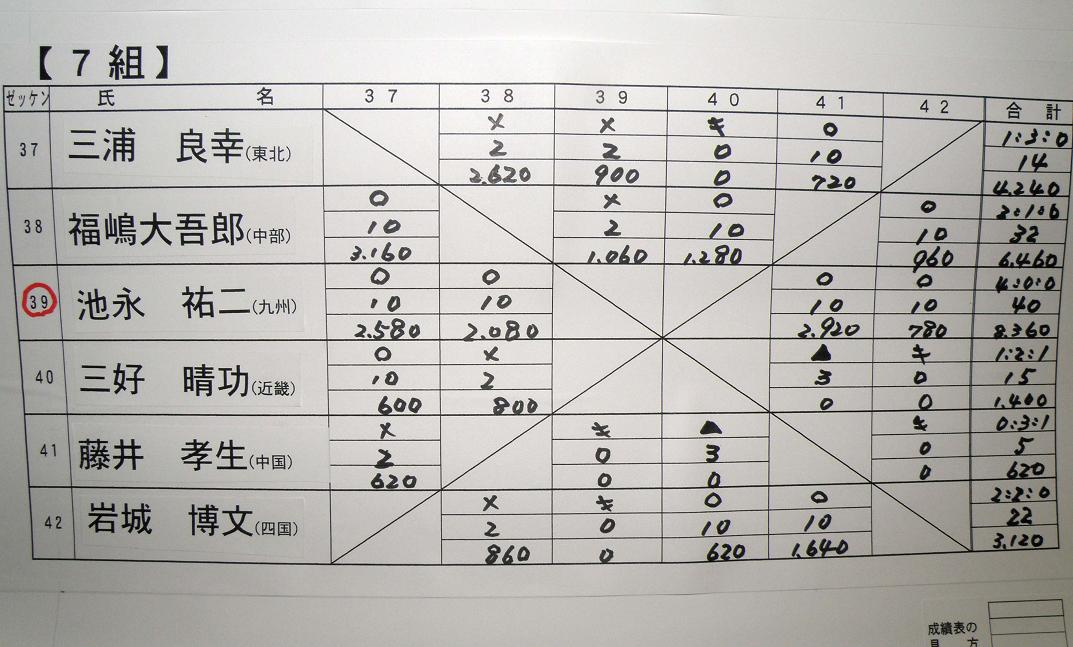 【７組】
ゼッケン 氏 名 37 38 39 40 41 42 合計
× × キ 0 1:3:0
37 三浦 良幸(東北) 2 2 0 10 14
2.620 900 0 720 4.240
0 × 0 0 3:1:0
38 福嶋大吾郎(中部) 10 2 10 10 32
3.160 1.060 1.280 960 6.460
0 0 0 0 4:0:0
39 池永 祐二(九州) 10 10 10 10 40
2.580 2.080 2.920 780 8.360
0 × ▲ キ 1:2:1
40 三好 晴功(近畿) 10 2 3 0 15
600 800 0 0 1.400
× キ ▲ キ 0:3:1
41 藤井 孝生(中国) 2 0 3 0 5
620 0 0 0 620
× キ 0 0 2:2:0
42 岩城 博文(四国) 2 0 10 10 22
860 0 620 1.640 3.120
成績表の
見方